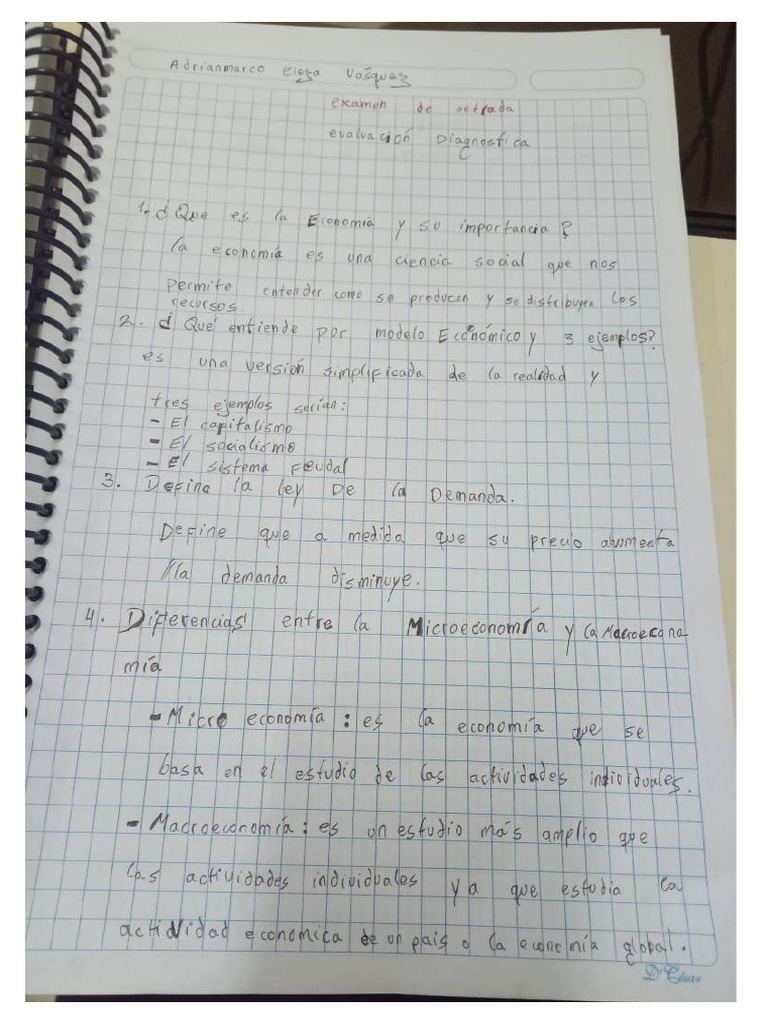 Adrianmarco eleza Vásquez
examen de entrada
evaluación Diagnostica
1. ¿Que es la Economía y su importancia?
la economía es una ciencia social que nos
permite entender como se producen y se distribuyen los
recursos.
2. ¿Qué entiende por modelo Económico y 3 ejemplos?
es una versión simplificada de la realidad y
tres ejemplos serían:
- El capitalismo
- El socialismo
- El sistema feudal
3. Defina la ley De la Demanda.
Define que a medida que su precio aumenta
la demanda disminuye.
4. Diferencias entre la Microeconomía y la Macroecono
mía
- Micro economía: es la economía que se
basa en el estudio de las actividades individuales.
- Macroeconomía: es un estudio más amplio que
las actividades individuales ya que estudia la
actividad economica de un pais o la economía global.
D'Cesar